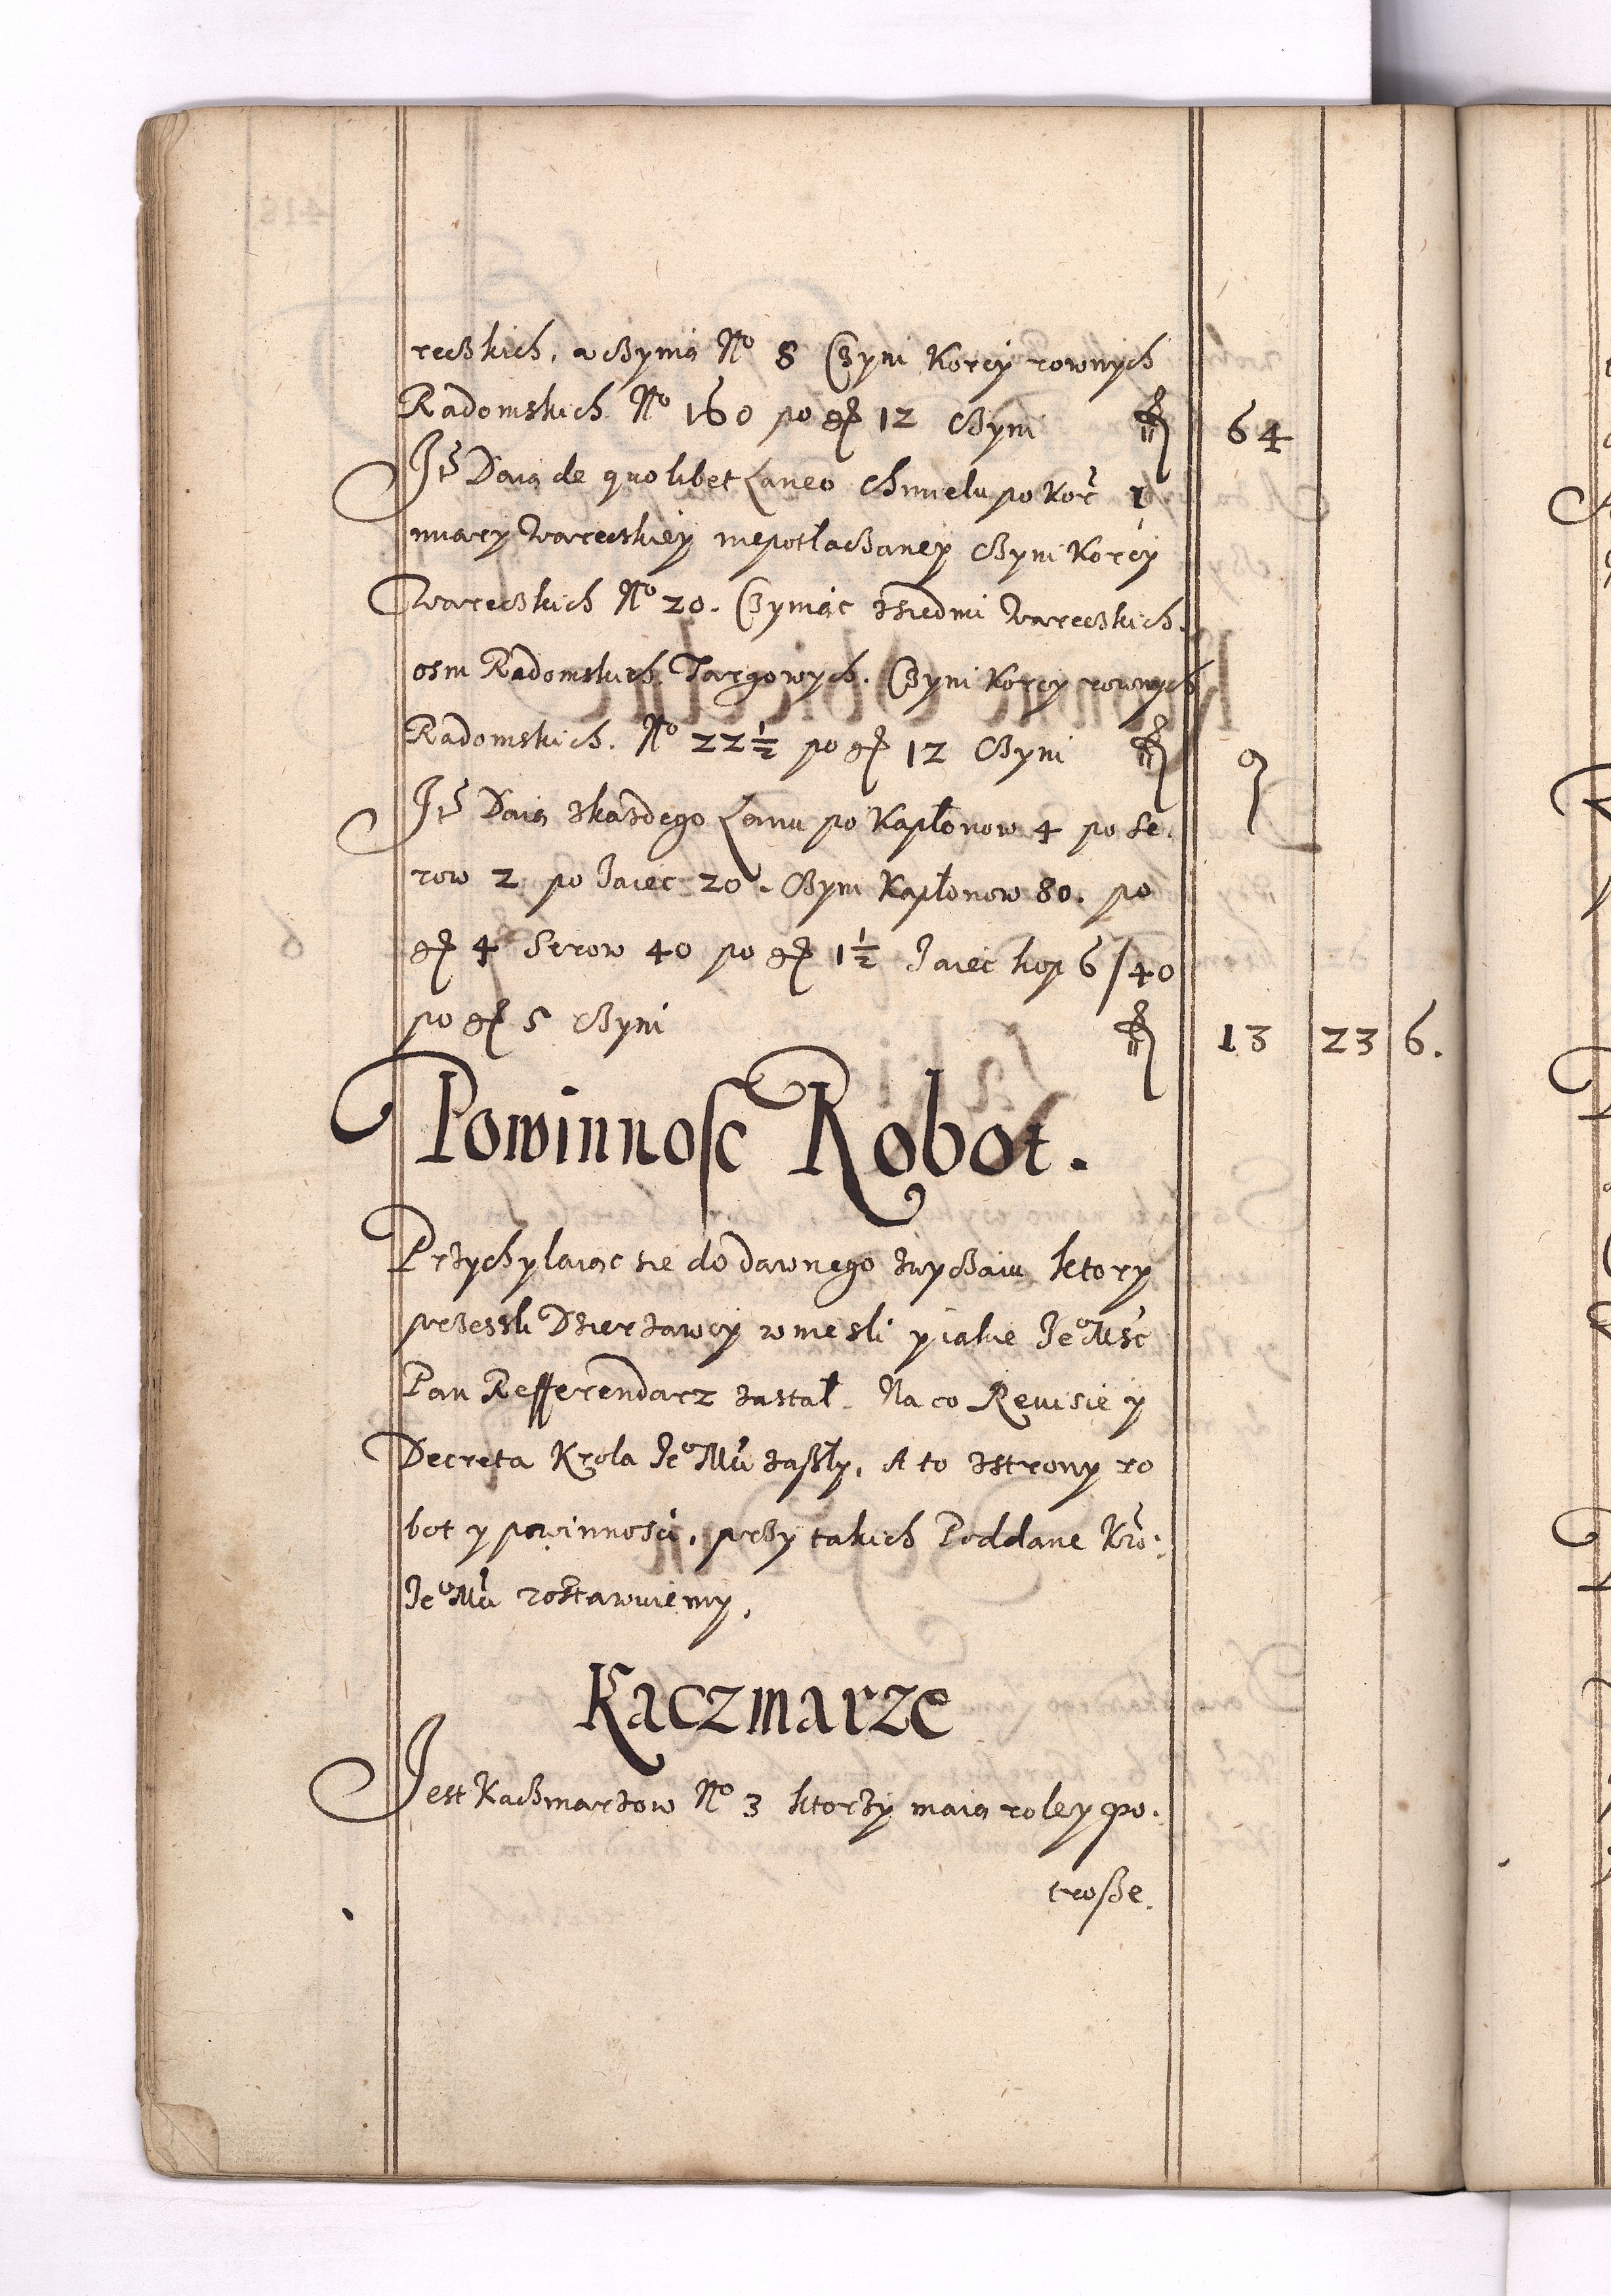 reckich, a czynią No 8 Czyni Korcy rownych
Radomskich No 160 po gr 12 czyni fl 64
It Daią de quolibet Laneo chmielu po Kor 1
miary Wareckiey niepotłaczaney czyni Korcy
Wareckich No 20. Czyniąc z siedmi Wareckich
osm Radomskich Targowych. Czyni Korcy rownych
Radomskich. No 22½ po gr 12 czyni fl 9
It Daią zkazdego Łanu po Kapłonow 4 po Se.
row 2 po Jaiec 20. czyni Kapłonow 80. po
gr 4 Serow 40 po gr 1½ Jaiec kop 6/40
po gr 5 czyni fl 13 23 6.
Powinnosc Robot.
Przychylaiąc sie do dawnego zwyczaiu ktory
przessli Dzierzawcy wniesli y iakie Je° Msc
Pan Refferendarz zastał. Na co Reuisie y
Decreta Krola Je° Mci zaszły. A to zstrony ro
bot y powinnosci, przy takich Poddane Kro:
Je° Mci zostawuiemy.
Kaczmarze
Jest Kaczmarzow No 3 ktorzy maią roley po.
trosze.